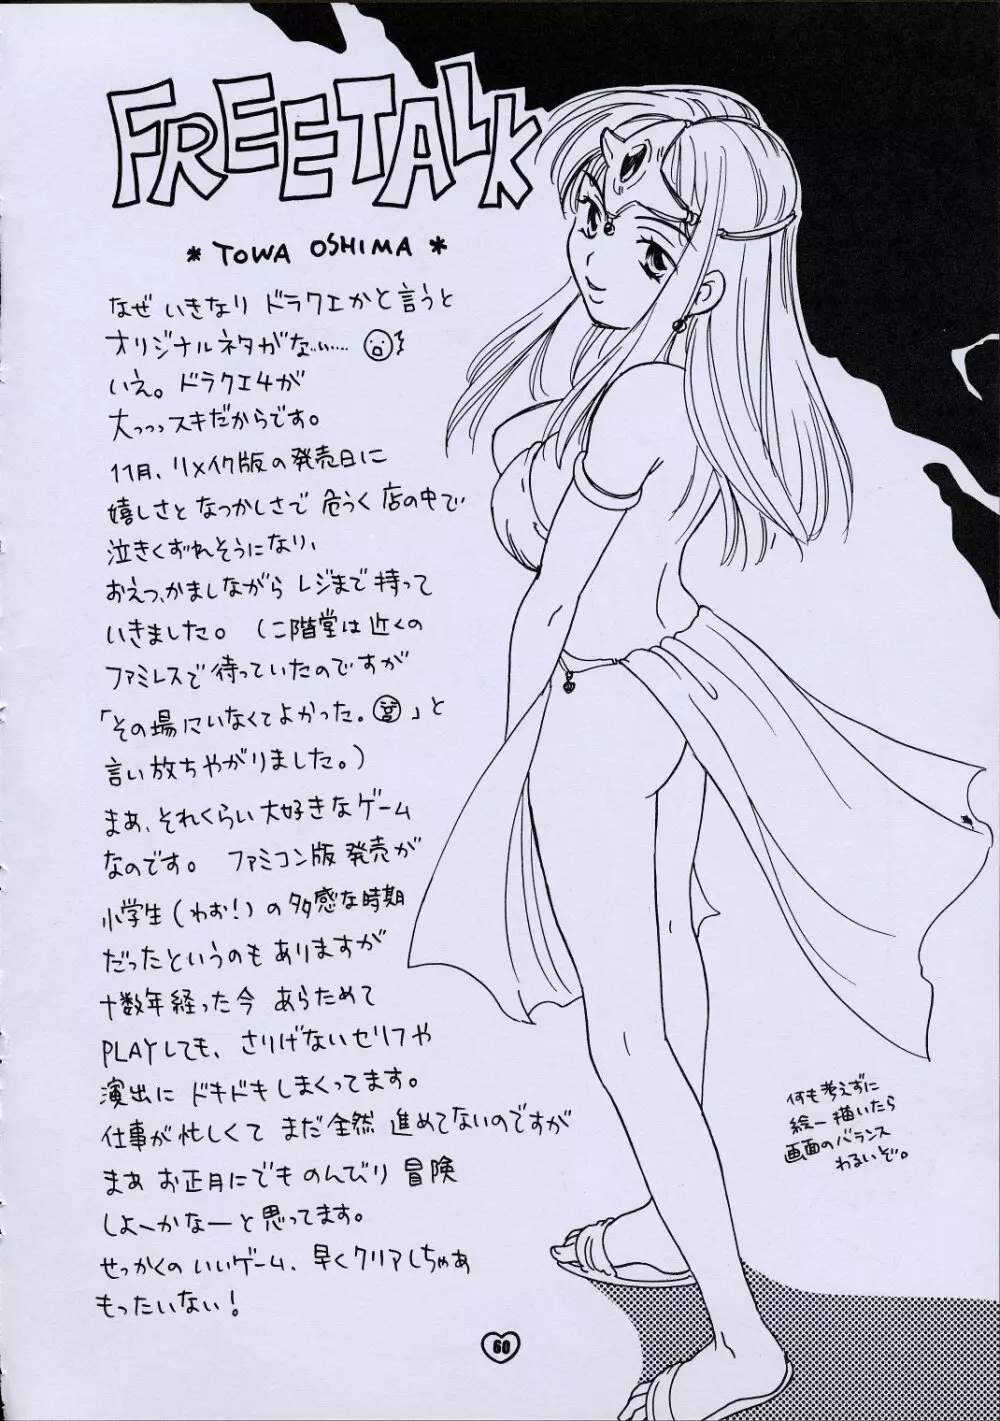 FREETALK
* TOWA OSHIMA *
なぜ いきなり ドラクエかと言うと
オリジナルネタがな……
いえ。ドラクエ4が
大っっっスキだからです。
11月、リメイク版の発売日に
嬉しさと なつかしさで 危うく 店の中で
泣きくずれそうになり、
おえつ、かましながら レジまで 持って
いきました。 (二階堂は近くの
ファミレスで待っていたのですが
「その場にいなくてよかった。」と
言い放ちやがりました。)
まぁ、それくらい大好きなゲーム
なのです。 ファミコン版 発売が
小学生(わお!)の多感な時期
だったというのも ありますが
十数年経った今 あらためて
PLAYしても、さりげないセリフや
演出に ドキドキしまくってます。
仕事が忙しくて まだ全然 進めてないのですが
まぁ お正月にでも のんびり 冒険
しよーかなーと思ってます。
せっかくの いいゲーム、早くクリアしちゃあ
もったいない!
何も考えずに
絵ー描いたら
画面のバランス
わるいぞ。
60